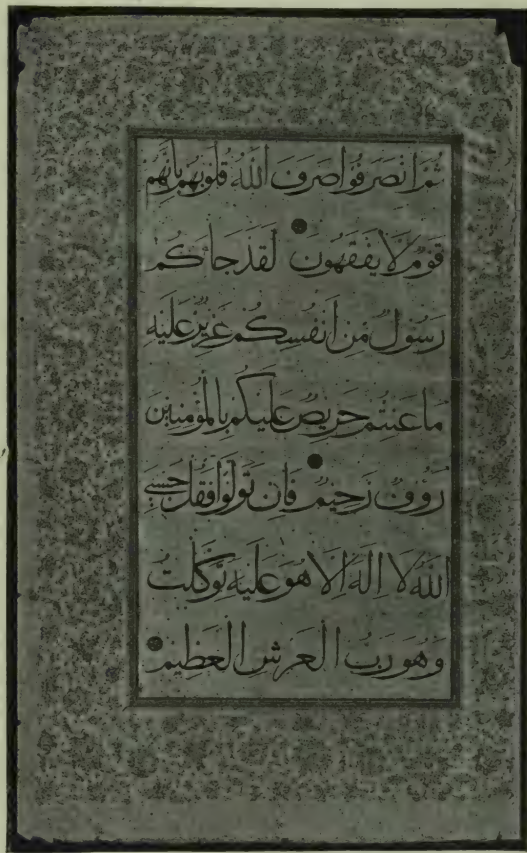 ثُمَّ انْصَرَفُوا صَرَفَ اللهُ قُلُوبَهُمْ بِأَنَّهُمْ
قَوْمٌ لَا يَفْقَهُونَ لَقَدْ جَاءَكُمْ
رَسُولٌ مِنْ أَنْفُسِكُمْ عَزِيزٌ عَلَيْهِ
مَا عَنِتُّمْ حَرِيصٌ عَلَيْكُمْ بِالْمُؤْمِنِينَ
رَؤُوفٌ رَحِيمٌ فَإِنْ تَوَلَّوْا فَقُلْ حَسْبِيَ
اللهُ لَا إِلَهَ إِلَّا هُوَ عَلَيْهِ تَوَكَّلْتُ
وَهُوَ رَبُّ الْعَرْشِ الْعَظِيمِ